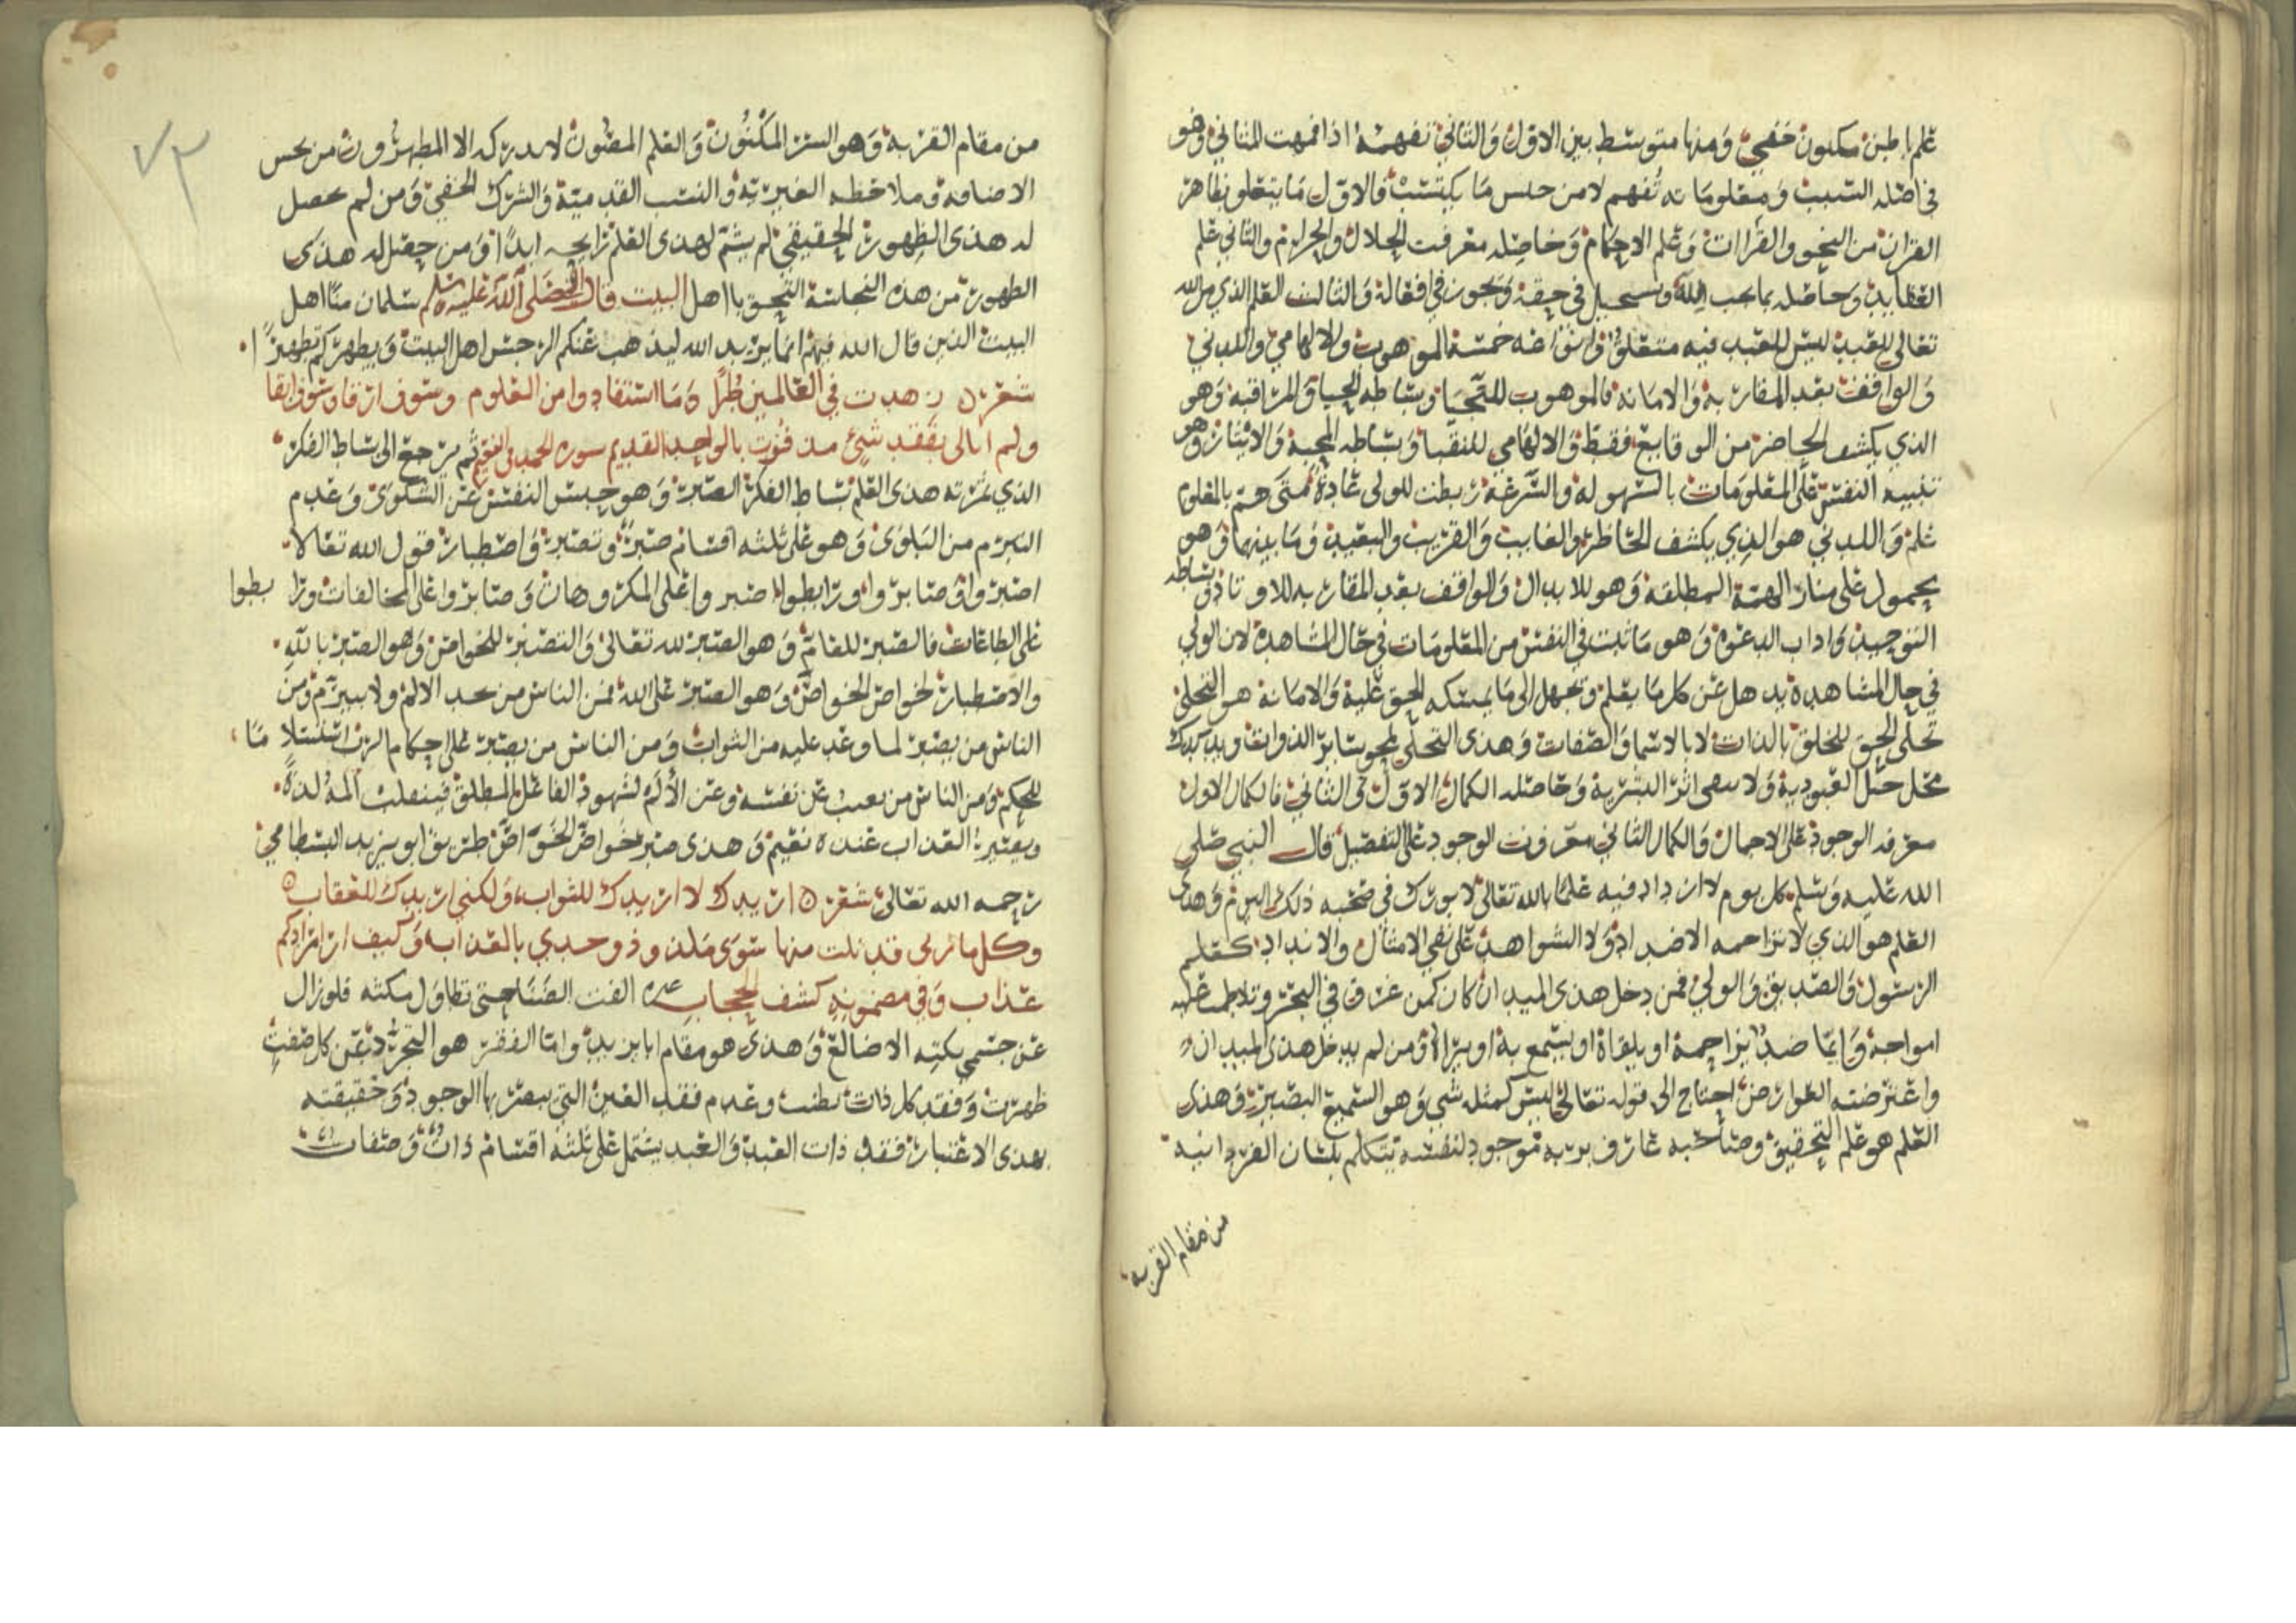 علم باطن مكنون خفي ومنها متوسط بين الاول والثاني تفهمه اذا فهمت المثاني وهو
في اصله السبب ومعلوماته تفهم لا من جنس ما يكتسب فالاول ما يتعلق بظاهر
القران من النحو والقرات وعلم الاحكام وحاصله معرفت الحلال والحرام والثاني علم
العقايد وحاصله بما يجب لله ويستحيل في حقه ويجوز في افعاله والثالث العلم الذي من الله
تعالى للعبد ليس للعبد فيه متعلق وانواعه خمسة الموهوب والالهامي واللدني
والواقف بعد المقاربة والامانه فالموهوب للنجبا وبساطه الحيا والمراقبه وهو
الذي يكشف الحاضر من الوقايع فقط والالهامي للنقبا وبساطه المحبة والايثار وهو
تنبيه النفس على المعلومات بالسهوله والسرعة ربطت للولى عادة متى هم بالمعلوم
علم واللدني هو الذي يكشف الخاطر والغايب والقريب والبعيد وما بينهما وهو
محمول على منار الهمة المطلقة وهو للابدال والواقف بعد المقاربه للاوتاد وبساطه
التوحيد واداب الدعوة وهو ما ثبت في النفس من المعلومات في حال المشاهدة لان الولي
في حال المشاهده يدهل عن كل ما يعلم ويجهل الى ما يمسكه الحق عليه والامانة هو التجلي
تجلى الحق للخلق بالذات لا بالاسما والصفات وهذى التجلي يمحو ساير الذوات ويدكدك
محل جبل العبودية ولا يبقى اثر البشرية وحاصله الكمال الاول في الثاني فالكمال الاول
معرفه الوجود على الاجمال والكمال الثاني معرفت الوجود على التفصيل قال النبي صلى
الله عليه وسلم كل يوم لا ازداد فيه علما بالله تعالى لا بورك في صبحه ذلك اليوم وهذى
العلم هو الذي لا تزاحمه الاضداد ولا الشواهد على نفي الامثال والانداد كعلم
الرسول والصديق والولي فمن دخل هذى الميدان كان كمن غرق في البحر وتلاطمت عليه
امواجه وايما ضد يزاحمه او يلقاه او يسمع به او يراه ومن لم يدخل هذى الميدان
واعترضته العوارض احتاج الى قوله تعالى ليس كمثله شي وهو السميع البصير وهذى
العلم هو علم التحقيق وصاحبه عارف بربه موجود لنفسه يتكلم بلسان الفردانية
من مقام القربه
٧٣
من مقام القربة وهو الستر المكنون والعلم المصون لا يدركه الا المطهرون من نجس
الاضافه وملاحظه الغيرية والنسب القدمية والشرك الخفي ومن لم يحصل
له هذى الطهور الحقيقي لم يشم لهذى العلم رايحه ابدا ومن حصل له هذى
الطهور من هذه النجاسة التحق باهل البيت قال النبي صلى الله عليه وسلم سلمان منا اهل
البيت الذين قال الله فيهم انما يريد الله ليذهب عنكم الرجس اهل البيت ويطهركم تطهيرا
شعر زهدت في العالمين طرا وما استفادوا من العلوم وسوف ارقا وسوف ابقا
ولم ابالى بفقد شيئ مذ فزت بالواحد القديم ثم يرجع الى بساط الفكر
الذي ثمرته هذى العلم بساط الفكر الصبر وهو حبس النفس عن الشكوى وعدم
التبرم من البلوى وهو على ثلثه اقسام صبر وتصبر واصطبار قول الله تعالا
اصبروا وصابروا ورابطوا اصبروا على المكروهات وصابروا على المخالفات ورابطوا
على الطاعات فالصبر للعام وهو الصبر لله تعالى والتصبر للخواص وهو الصبر بالله
والاصطبار لخواص الخواص وهو الصبر على الله فمن الناس من يجد الالم ولا يبرم ومن
الناس من يصبر لما وعد عليه من الثواب ومن الناس من يصبر على احكام الرب استسلاما
للحكم ومن الناس من يغيب عن نفسه وعن الالم لشهود الفاعل المطلق فينقلب المه لذة
ويصير العذاب عنده نعيم وهذى صبر خواص الخواص طريق ابو يزيد البسطامي
رحمه الله تعالى شعر اريدك لا اريدك للثواب ولكني اريدك للعقاب
وكل ماربى قد نلت منها سوى ملذوذ وجدي بالعذاب وكيف ارى مرادكم
عذاب وفي مضمونه كشف الحجاب غيره الفت الضنا حتى تطاول مكثه فلو زال
عن جسمي بكته الاضالع وهذى هو مقام ابا يزيد واما الفقر هو التجرد عن كل صفت
ظهرت وفقد كل ذات بطنت وعدم فقد العين التي يبصر بها الوجود وحقيقته
بهذى الاعتبار فقد ذات العبد والعبد يشتمل على ثلثه اقسام ذات وصفات